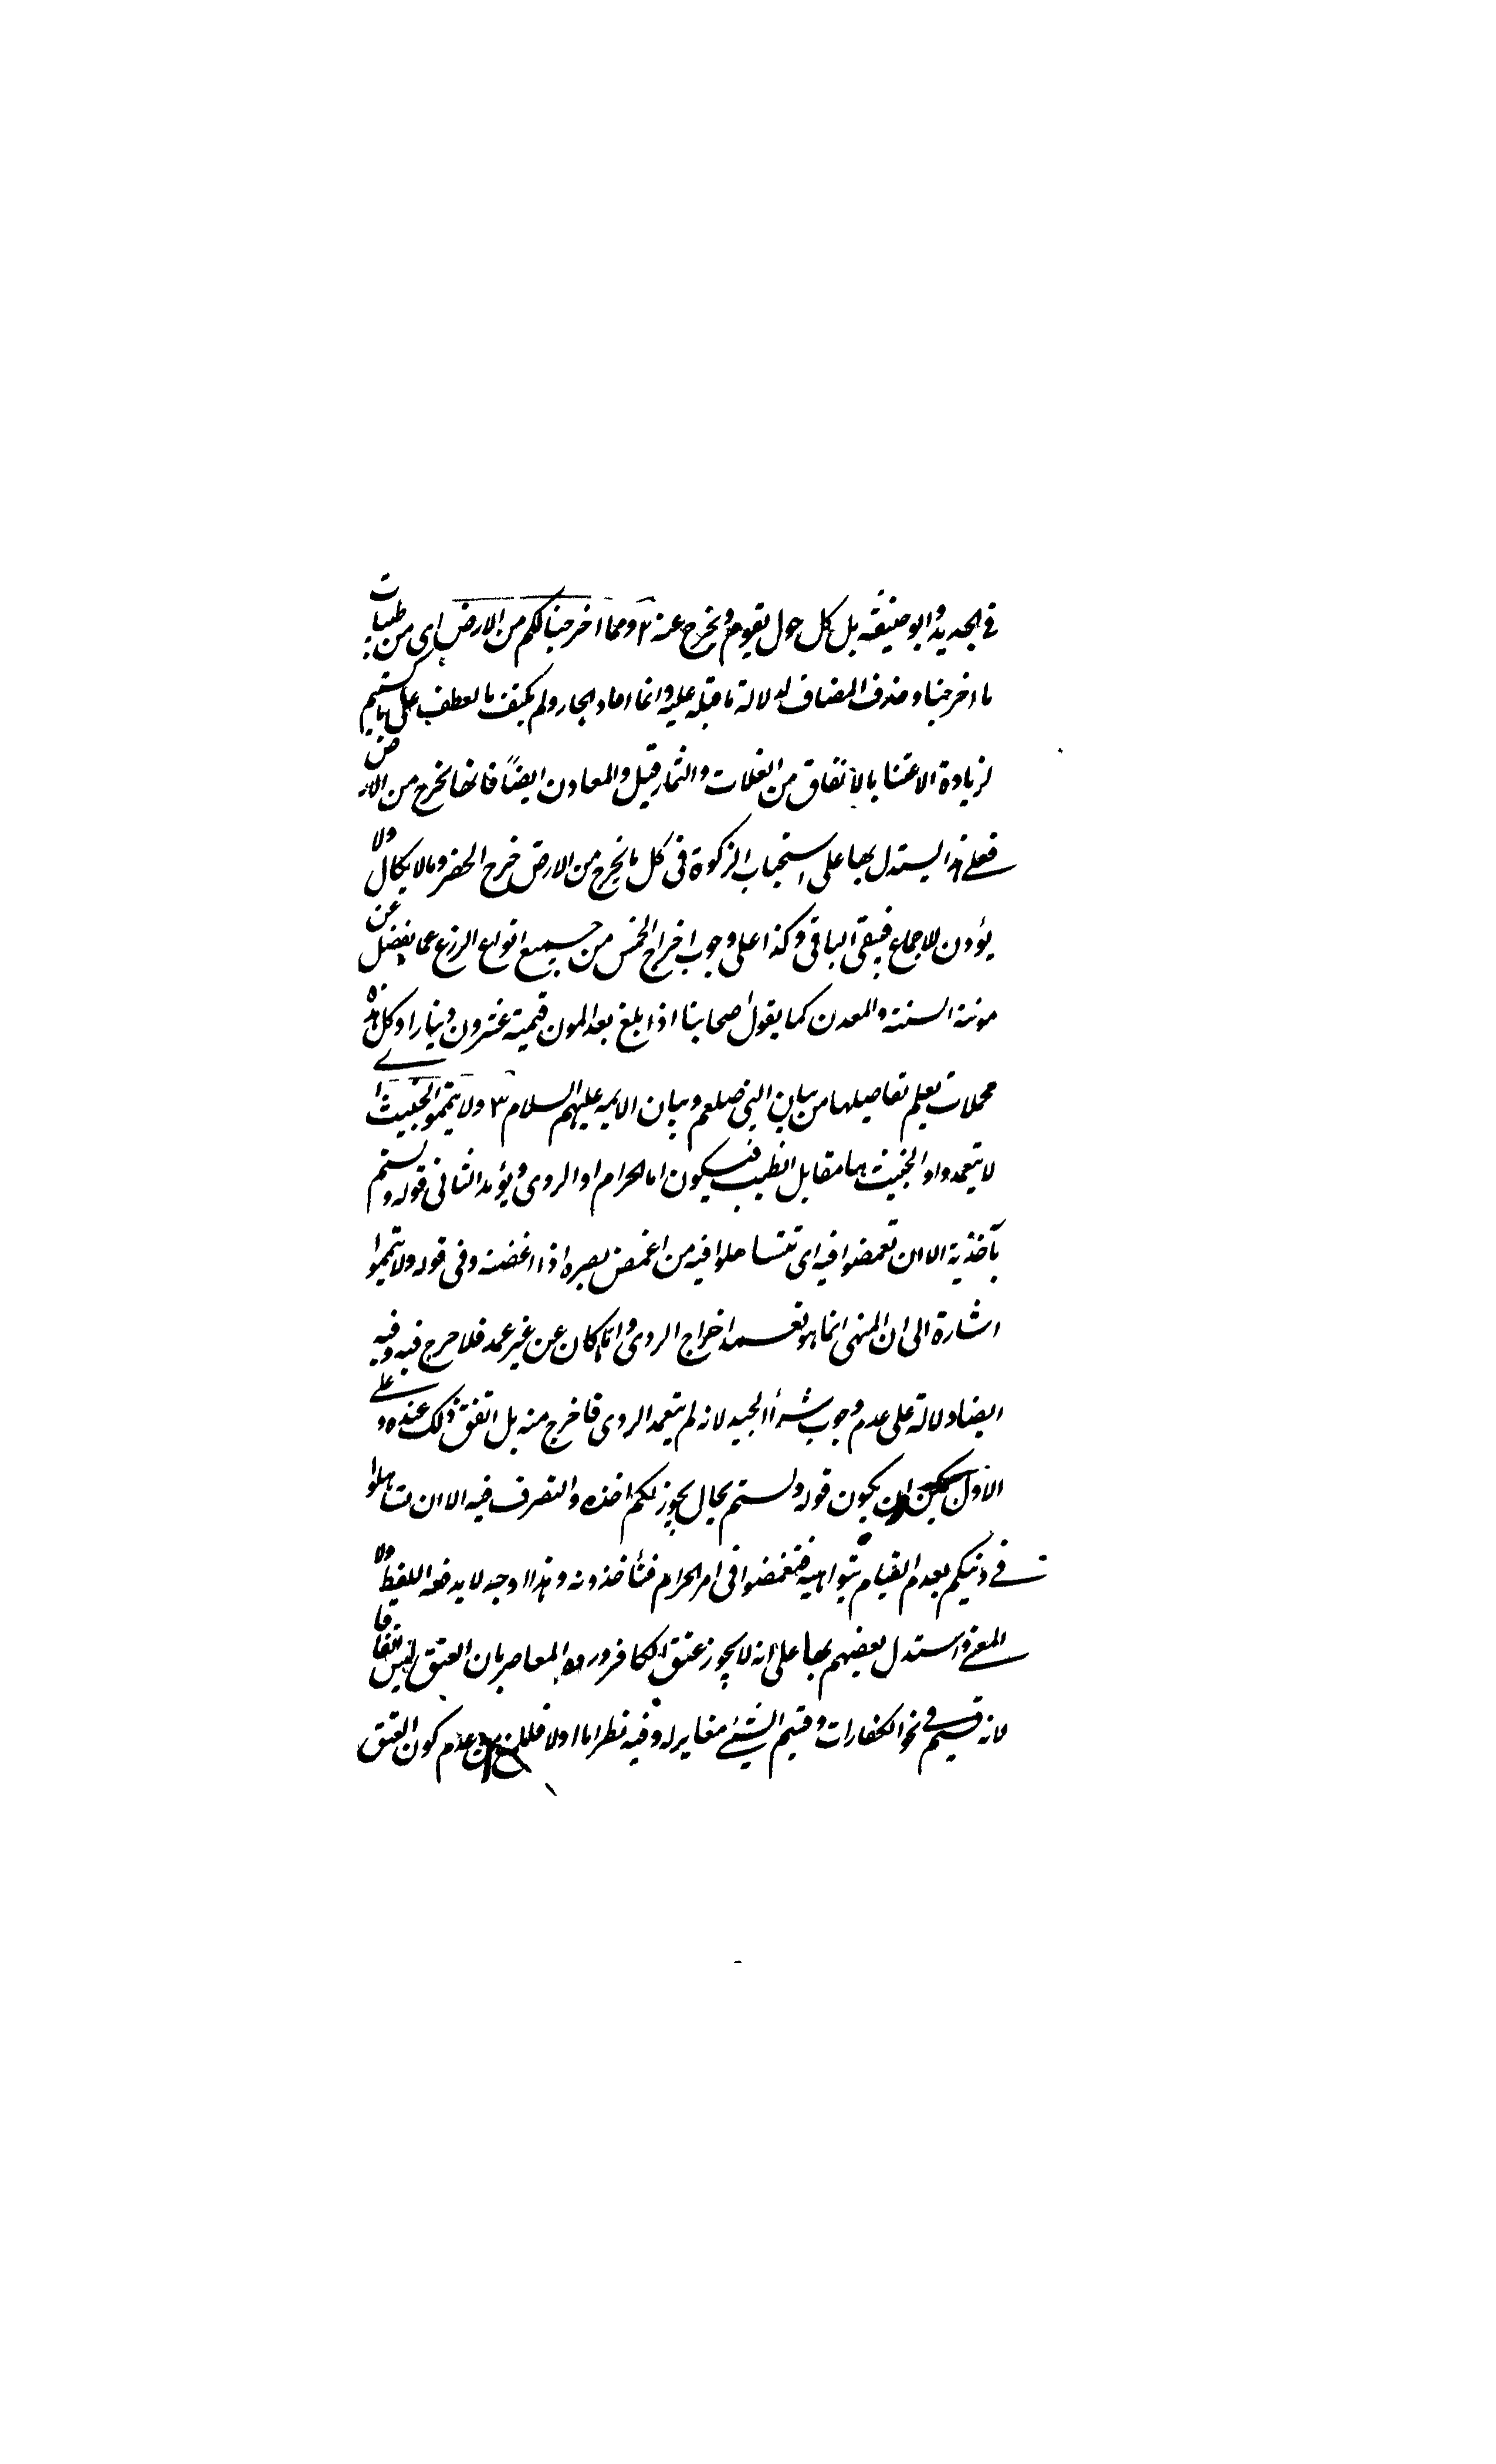 في الجديد وابو حنيفة بل كل حول يقوم ويخرج عنه ٢ ومما اخرجنا لكم من الارض اى من طيبات
ما اخرجنا وحذف المضاف لدلالة ما قبله عليه وانما اعاد الجار ولم يكتف بالعطف على ما كسبتم
لزيادة الاعتنا بالانفاق من الغلات والثمار قيل والمعادن ايضاً فانها تخرج من الارض
فعلى هذا يستدل بها على استحباب الزكوة فى كل ما يخرج من الارض خرج الخضر وما لا يكال ولا
يؤزن للاجماع فيبقى الباقى وكذا على وجوب اخراج الخمس من جميع انواع الزرع عما يفضل عن
مونة السنة والمعدن كما يقول اصحابنا اذا بلغ بعد المون قيمته عشرون دينارا وكل هذه
مجملات يعلم تفاصيلها من بيان النبى صلعم وبيان الايمه عليهم السلام ٣ ولا تيمموا الخبيث اى
لا تتعمدوا والخبيث هنا مقابل الطيب فيكون اما الحرام او الردى ويؤيد الثانى قوله ولستم
بآخذيه الا ان تغمضوا فيه اى تتساهلوا فيه من اغمض بصره اذا غضه وفى قوله ولا تيمموا
اشارة الى ان المنهى انما هو تعمد اخراج الردى واما كان عن غير عمد فلا حرج فيه وفيه
ايضا دلالة على عدم وجوب شرأ الجيد لانه لم يتعمد الردى فاخرج منه بل اتفق ذلك عنده وعلى
الاول يمكن ان يكون قوله ولستم بحال يجوز لكم اخذه والتصرف فيه الا ان تساهلوا
في دينكم بعدم القيام بنواهيه فتغمضوا فى امر الحرام فتأخذونه وهذا وجه لا يدفعه اللفظ ولا
المعنى واستدل بعضهم بها على انه لا يجوز عتق الكافر ورده المعاصر بان العتق ليس انفاقا
لانه قسيم في نحو الكفارات وقسيم الشيئ مغاير له وفيه نظر اما اولا فلمنع عدم كون العتق